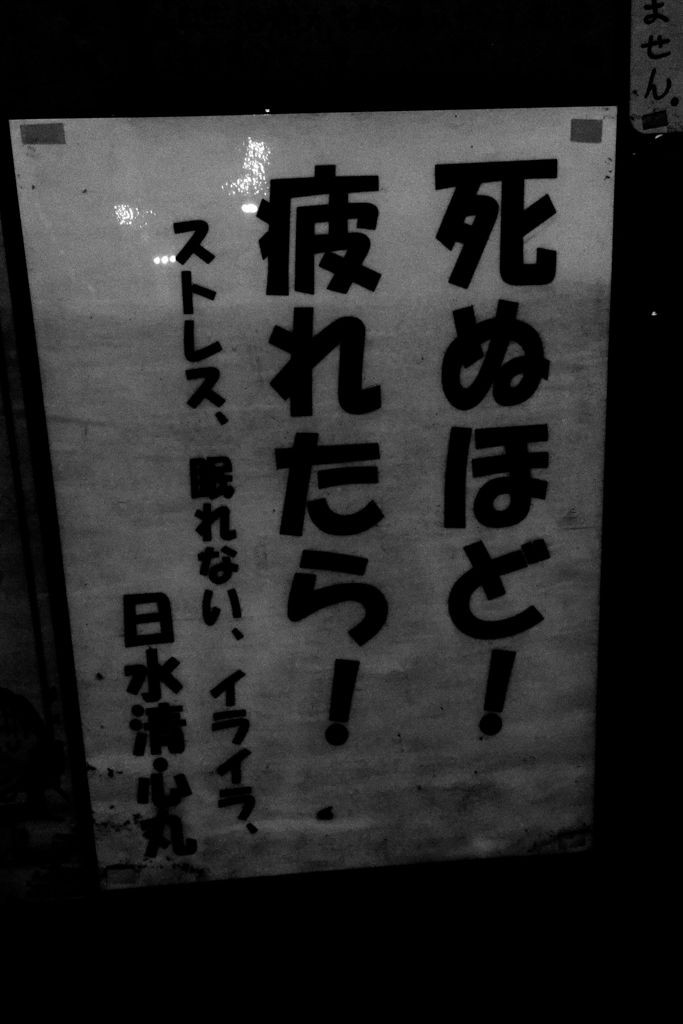 ません。
死ぬほど!
疲れたら!
ストレス、眠れない、イライラ、
日水清・心丸